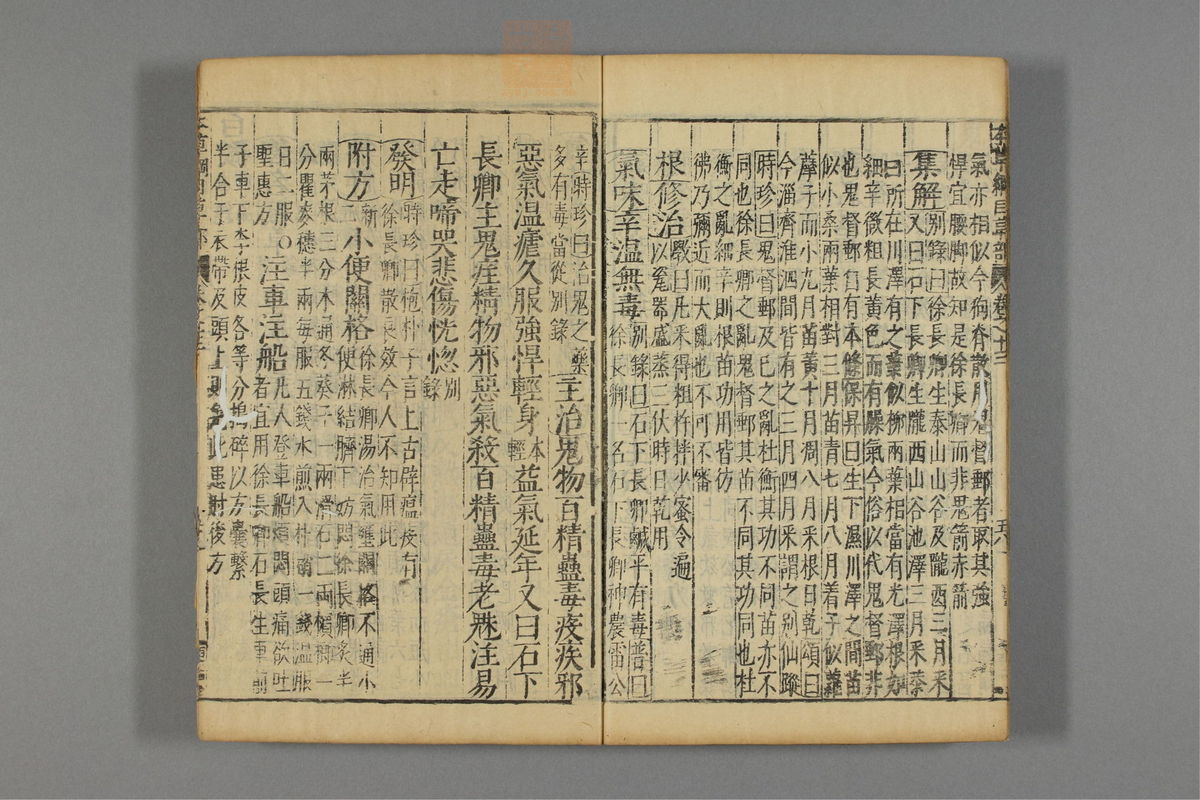 氣亦相似今狗脊散用鬼督郵者取其強
悍宜腰脚故知是徐長卿而非鬼箭赤箭
集解別錄曰徐長卿生泰山山谷及隴西三月采
又曰石下長卿生隴西山谷池澤三月采恭
曰所在川澤有之葉似柳兩葉相當有光澤根如
細辛微粗長黃色而有臊氣今俗以代鬼督郵非
也鬼督郵自有本條保昇曰生下濕川澤之間苗
似小桑兩葉相對三月苗青七月八月着子似蘿
藦子而小九月苗黃十月凋八月采根日乾頌曰
今淄齊淮泗間皆有之三月四月采謂之別仙蹤
時珍曰鬼督郵及已之亂杜衡其功不同苗亦不
同也徐長卿之亂鬼督郵其苗不同其功同也杜
衡之亂細辛則根苗功用皆彷
彿乃彌近而大亂也不可不審
根修治斅曰凡采得粗杵拌少蜜令遍
以瓷器盛蒸三伏時日乾用
氣味辛温無毒別錄曰石下長卿鹹平有毒普曰
徐長卿一名石下長卿神農雷公
辛時珍曰治鬼之藥
多有毒當從別錄
主治鬼物百精蠱毒疫疾邪
惡氣温瘧久服強悍輕身本輕益氣延年又曰石下
長卿主鬼疰精物邪惡氣殺百精蠱毒老魅注易
亡走啼哭悲傷恍惚別錄
發明時珍曰抱朴子言上古辟瘟疫有
徐長卿散良效今人不知用此
附方新二小便關格徐長卿湯治氣壅關格不通小
便淋結臍下妨悶徐長卿炙半
兩茅根三分木通冬葵子一兩滑石二兩檳榔一
分瞿麥穗半兩每服五錢水煎入朴硝一錢温服
日二服○注車注船凡人登車船煩悶頭痛欲吐
聖惠方
者宜用徐長卿石長生車前
子車下李根皮各等分搗碎以方囊繫
半合于衣帶及頭上則免此患肘後方